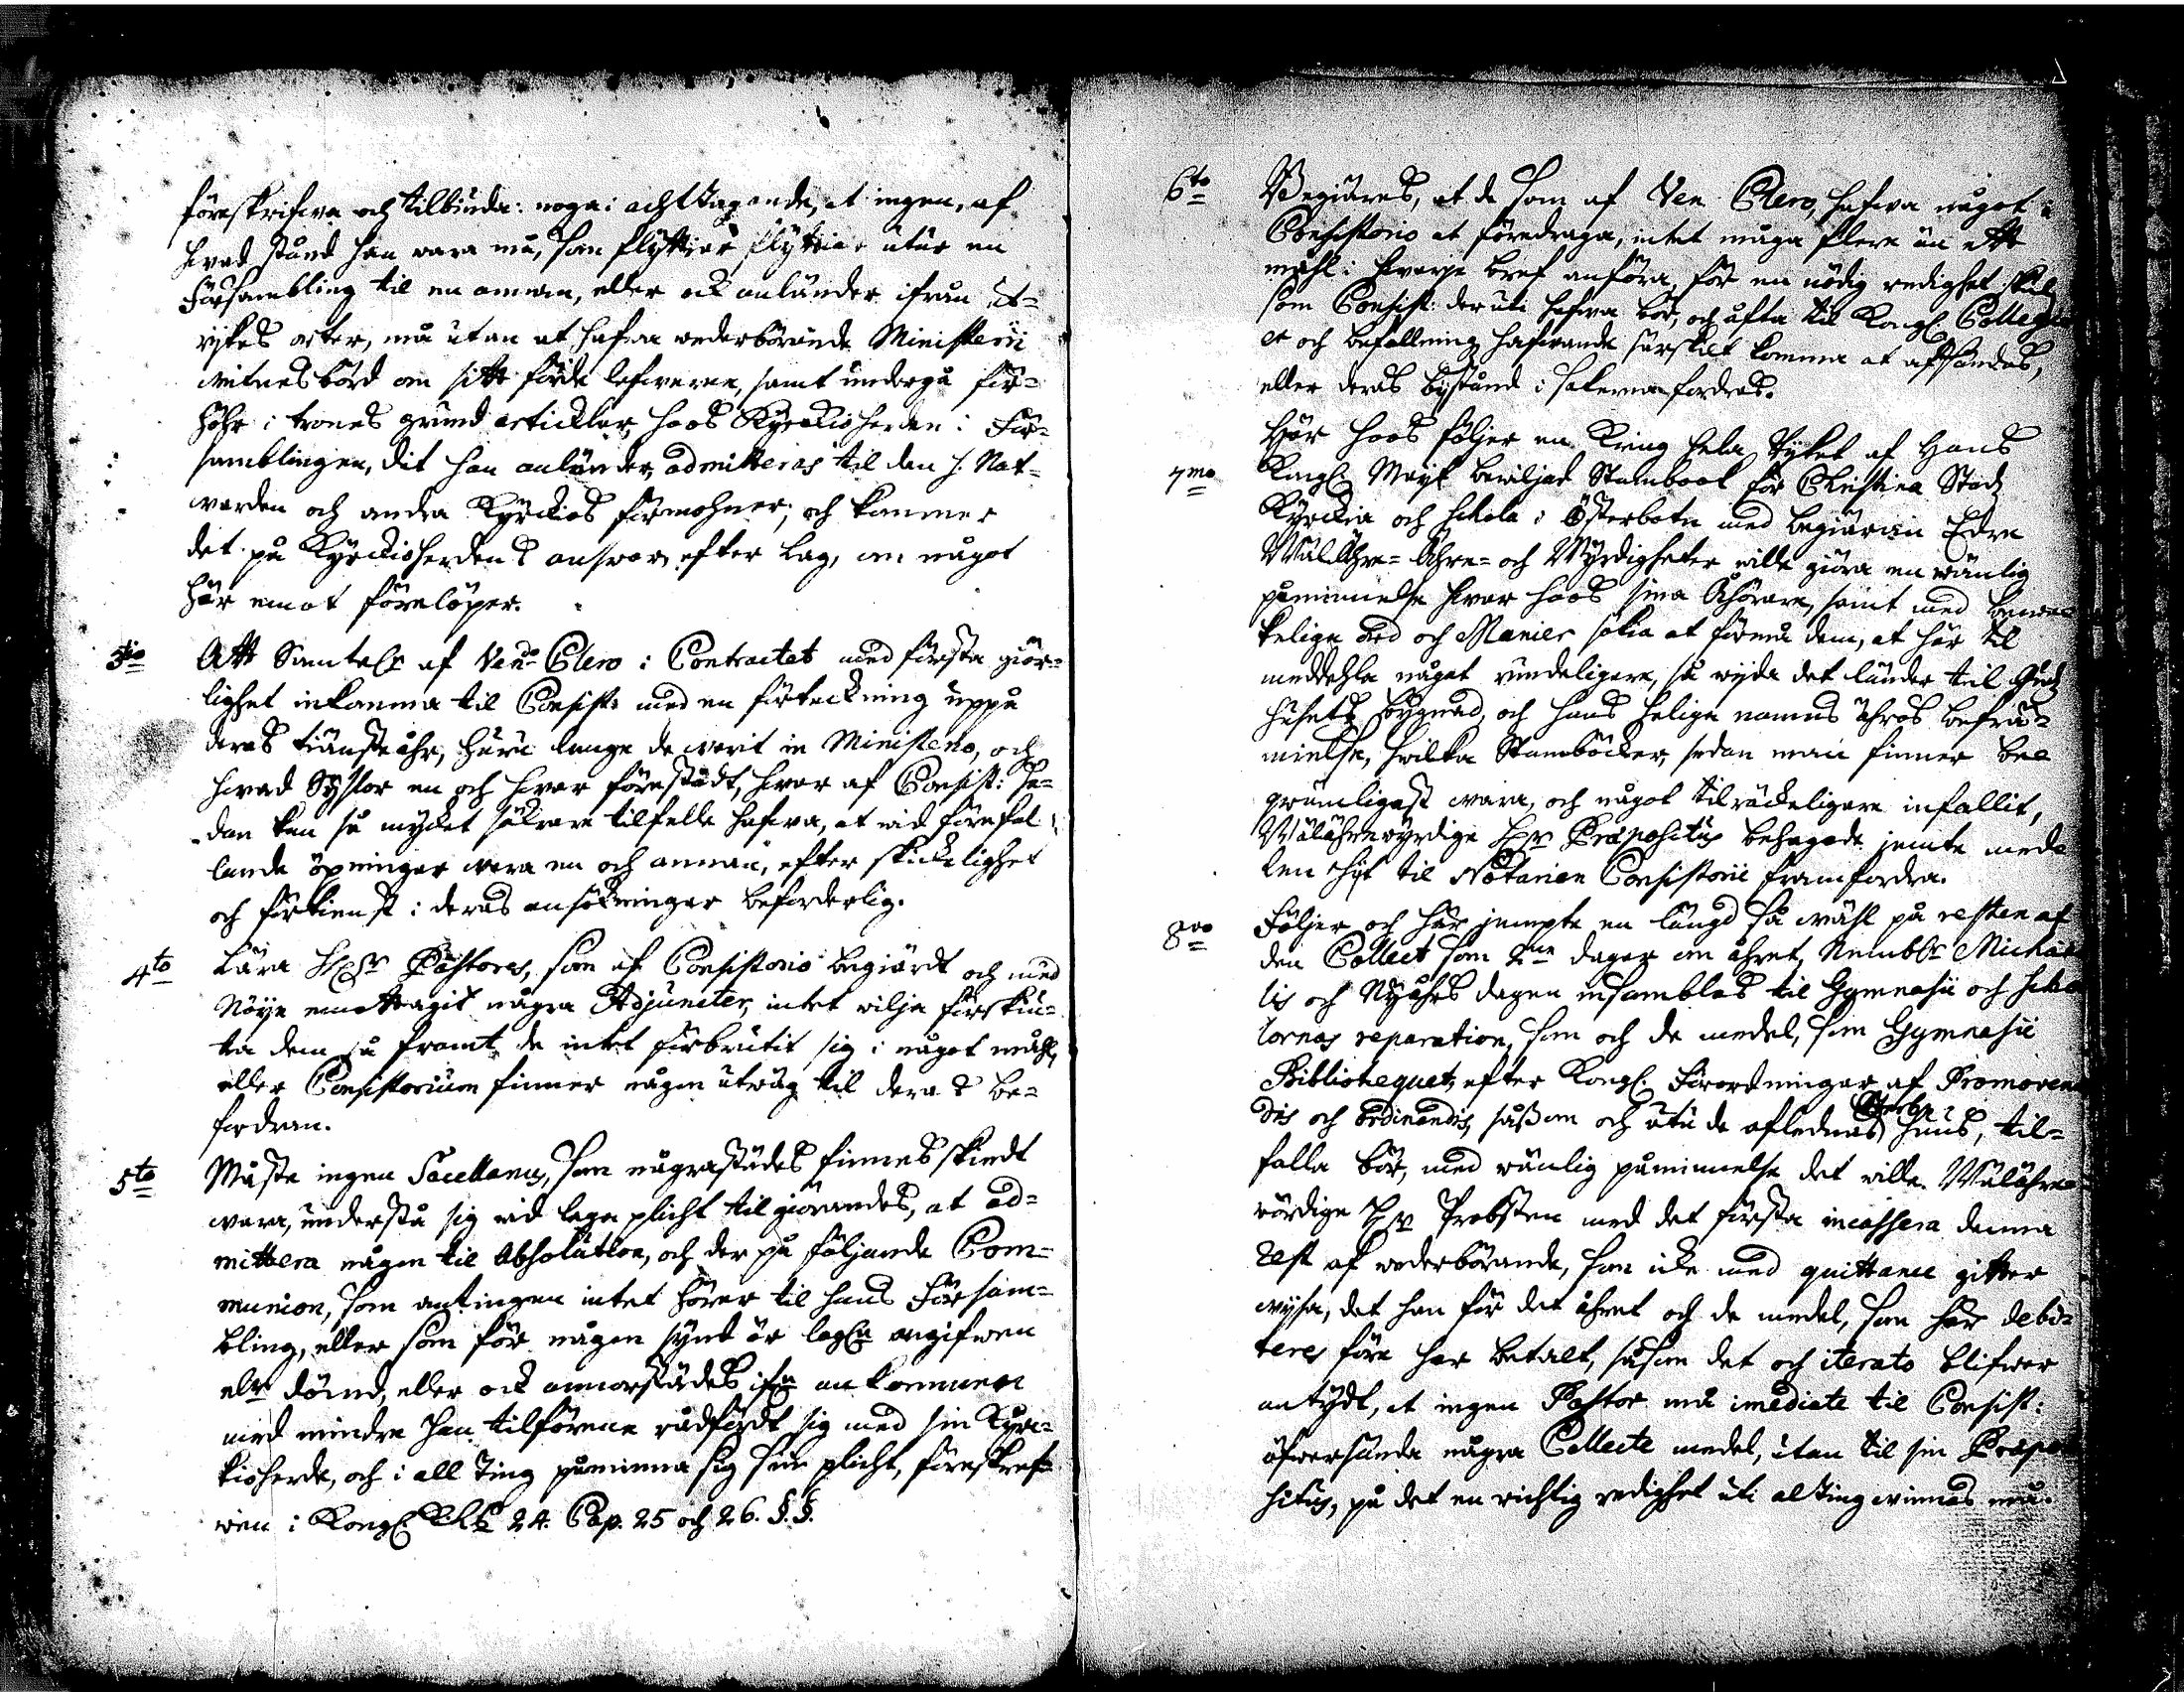 föreskrifwa och tilbinda: noga i acht tagande, at ingen, af
hwad stånd han wara må, som flyttiar flyttiar utur en
Försambling til en annan, eller ock anländer ifrån ut-
rykes orter, må utan at hafwa wederbörande Ministerii
witnesbörd om sitt förde lefwerne, samt undergå för-
höhr i trones grund articklar, hoos Kyrckioherden i För-
samblingen, dit han anländer, admitteras til den h. Nat-
warden och andra Kyrckios förmohner; och kommer
det på Kyrckioherdens answar efter lag, om något
här emot förelöper.
3tio Att Samtel:r af Ven:do Clero i Contractet med första giör-
lighet inkomma til Consist: med en förteckning uppå
deras tiänste åhr, huru länge de warit in Ministerio, och
hwad Syslor en och hwar förestådt, hwar af Consist: se-
dan kan så mycket säkrare tilfelle hafwa, at wid förefal-
lande öpningar wara en och annan, efter skickelighet
och förtienst i deras ansökningar beforderlig.
4to Lära H:r Pastores, som af Consistorio begiärdt och med
Nöye emottagit några Adjuncter, intet wilja förskiu-
ta dem så framt de intet förbrutit sig i något måhl,
eller Consistorium finner någon utwäg til deras be-
fordran.
5to Måste ingen Sacellanus, som någrastädes finnes skiedt
wara, understå sig wid laga plicht til giörandes, at ad-
mittera någon til Absolution, och der på följande Com-
munion, som antingen intet hörer til hans Försam-
bling, eller som för någon synd är lagl:n angifwen
el:r dömd, eller ock annorstädes if:n ankommen
med mindre han tilförene rådfördt sig med sin Kyrc-
kioherde, och i all Ting påminna sig sin plicht, föreskref-
wen i Kongl: 24. Cap. 25 och 26. §.§.
6to Begiäres, at de som af Ven. Clero, hafwa något i
Consistorio at föredraga, intet måga flere än ett
måhl i hwarje bref anföra, för en nödig redighet skul
som Consist: der uti hafwa bör, och ofta til Kongl: Colleg
och befallning hafwande särskilt komma at afsändas,
eller deras bystånd i sakerna fordras.
Här hoos följer en kring hela Ryket af Hans
7mo Kongl: Mayt bewiljad Stambook för Christina Stadz
Kyrckia och Schola i Österbotn med begiäran Edre
Wäl Ähre- Ähre- och Wyrdigheter wille giöra en wänlig
påminnelse hwar hoos sina Åhörare, samt med beweke-
kelige ord och Manier sökia at förmå dem, at här til
meddehla något rundeligare, så wyda det länder til Gudz
husets bygnad, och hans helige namns ähros befräm-
mielse, hwilka Stamböcker, sedan man finner be-
qwämligast wara, och något tilräckeligare infallit,
Wälährewyrdige H:r Præpositus behagade jemte mede-
len hijt til Notarien Consistorii framfordra.
8vo Följer och här jempte en längd så wähl på resten af
den Collect som 2:ne dagar om åhret, Nembl:n Michae-
lis och Nyåhrs dagen insamblas til Gymnasii och Scho-
lornas reparation, som och de medel, som Gymnasii
Bibliothequet, efter Kongl: Förordningar af Promoven-
dis och ordinandis, såsom och utur de aflednas Sterb- huus, til-
falla bör, med wänlig påminnelse det wille Wälähre-
wördige H:r Probsten med det första incassera denna
rest af wederbörande, som icke med quittance gitter
wysa, det han för det åhret och de medel, som här debi-
teres före har betalt, såsom det och iterato blifwer
antydt, at ingen Pastor må imediate til Consist:
öfwersända några Collecte medel, utan til sin Præpo-
situs, på det en richtig redighet uti alting winnas må.